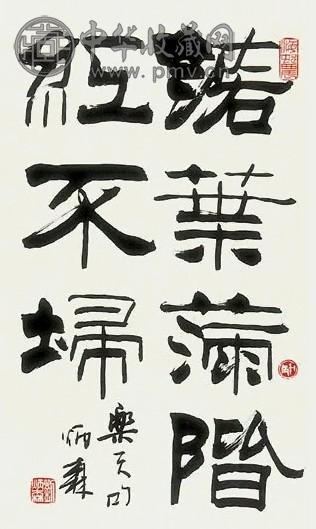 中华收藏网
www.pmv.cn
落葉滿階
紅不埽
樂天句
炳森